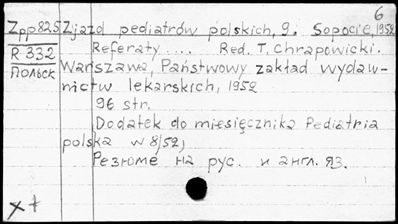 6
Zpp825 Zjazd pediatrów polskich, 9. Sopocie, 1952
R 332 Referaty..... Red. T. Chrapowicki.
Польск Warszawa, Państwowy zakład wydaw-
nictw lekarskich, 1952
96 str.
Dodatek do miesięcznika Pediatria
polska w 8/52,
Резюме на рус. и англ. яз.